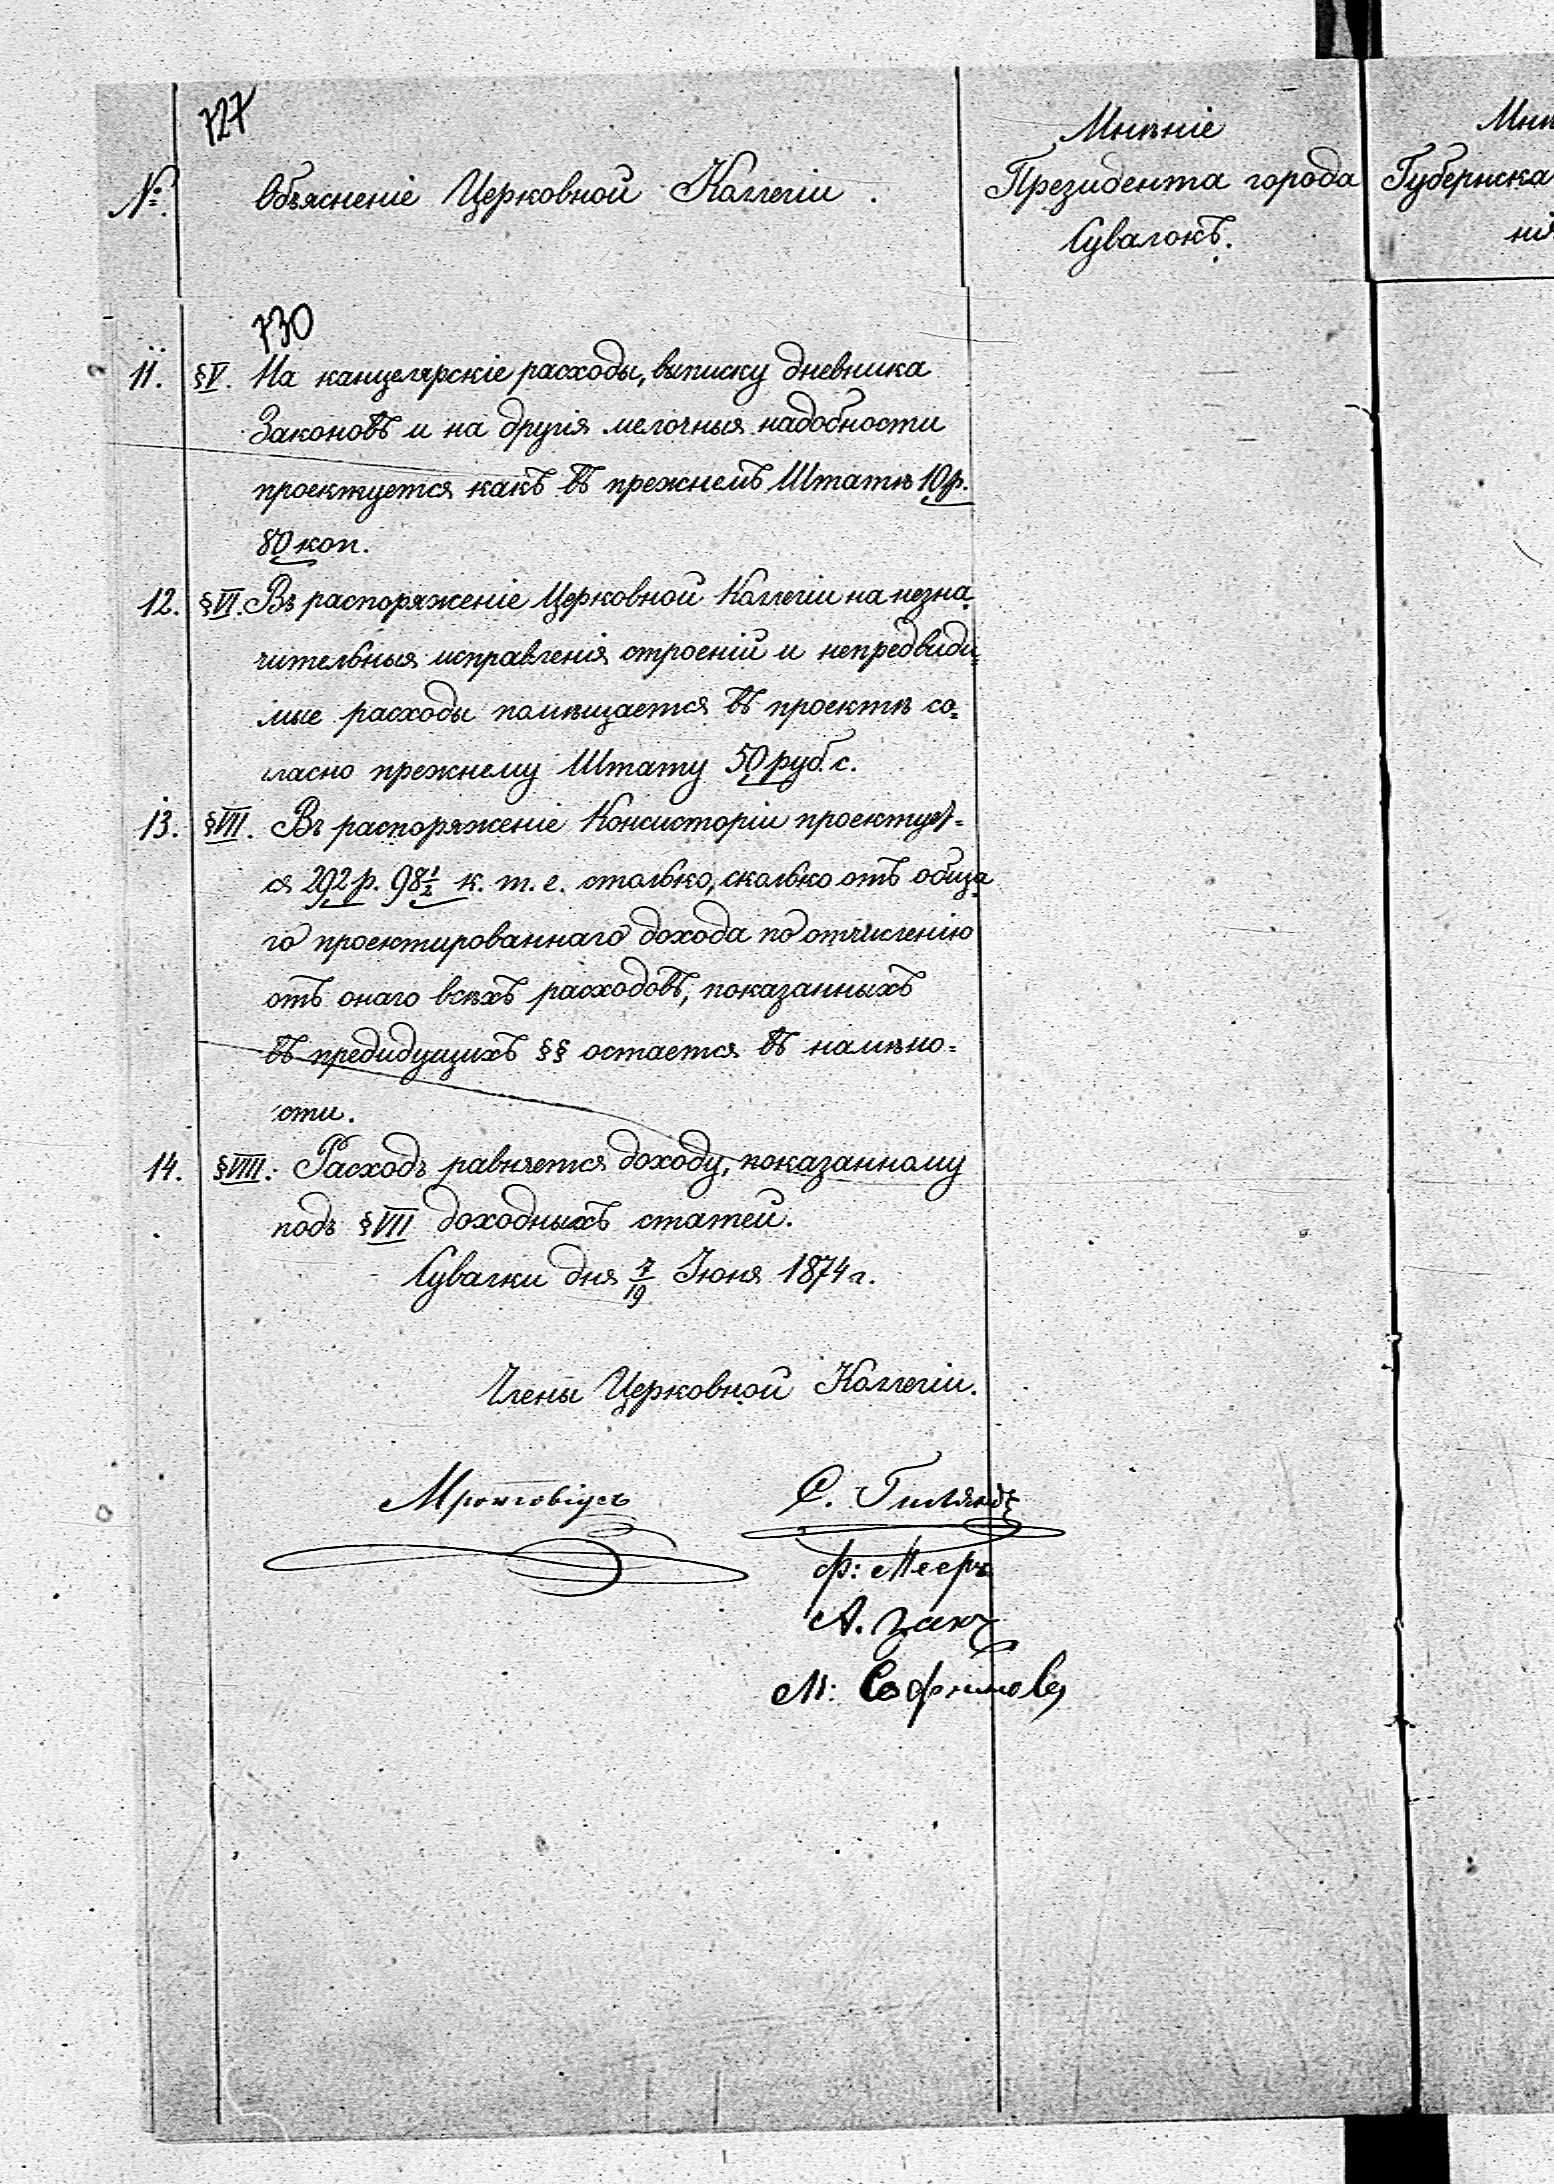 727
№. Объясненіе Церковной Коллегіи.
Мнѣніе
Президента города
Сувалокъ.
Мнѣ
Губернска
нія
730
11. §V. На канцелярскіе расходы, выписку дневника
Законовъ и на другія мелочныя надобности
проектуется какъ въ прежнемъ Штатѣ 10 р.
80 коп.
12. §VI. Въ распоряженіе Церковной Коллегіи на незна-
чительныя исправленія строеній и непредвиди=
мые расходы помѣщается въ проектѣ со=
гласно прежнему Штату 50 руб. с.
13. §VII. Въ распоряженіе Консисторіи проектует=
ся 292 р. 98 1/2 к. т. е. столько, сколько отъ обща-
го проектированнаго дохода по отчисленію
отъ онаго всѣхъ расходовъ, показанныхъ
въ предидущихъ §§ остается въ налично=
сти.
14. §VIII. Расходъ равняется доходу, показанному
подъ §VIII доходныхъ статей.
Сувалки дня 7/19 Іюня 1874 г.
Члены Церковной Коллегіи.
Мронговіусъ
С.
Ф:
А. Закъ
М: